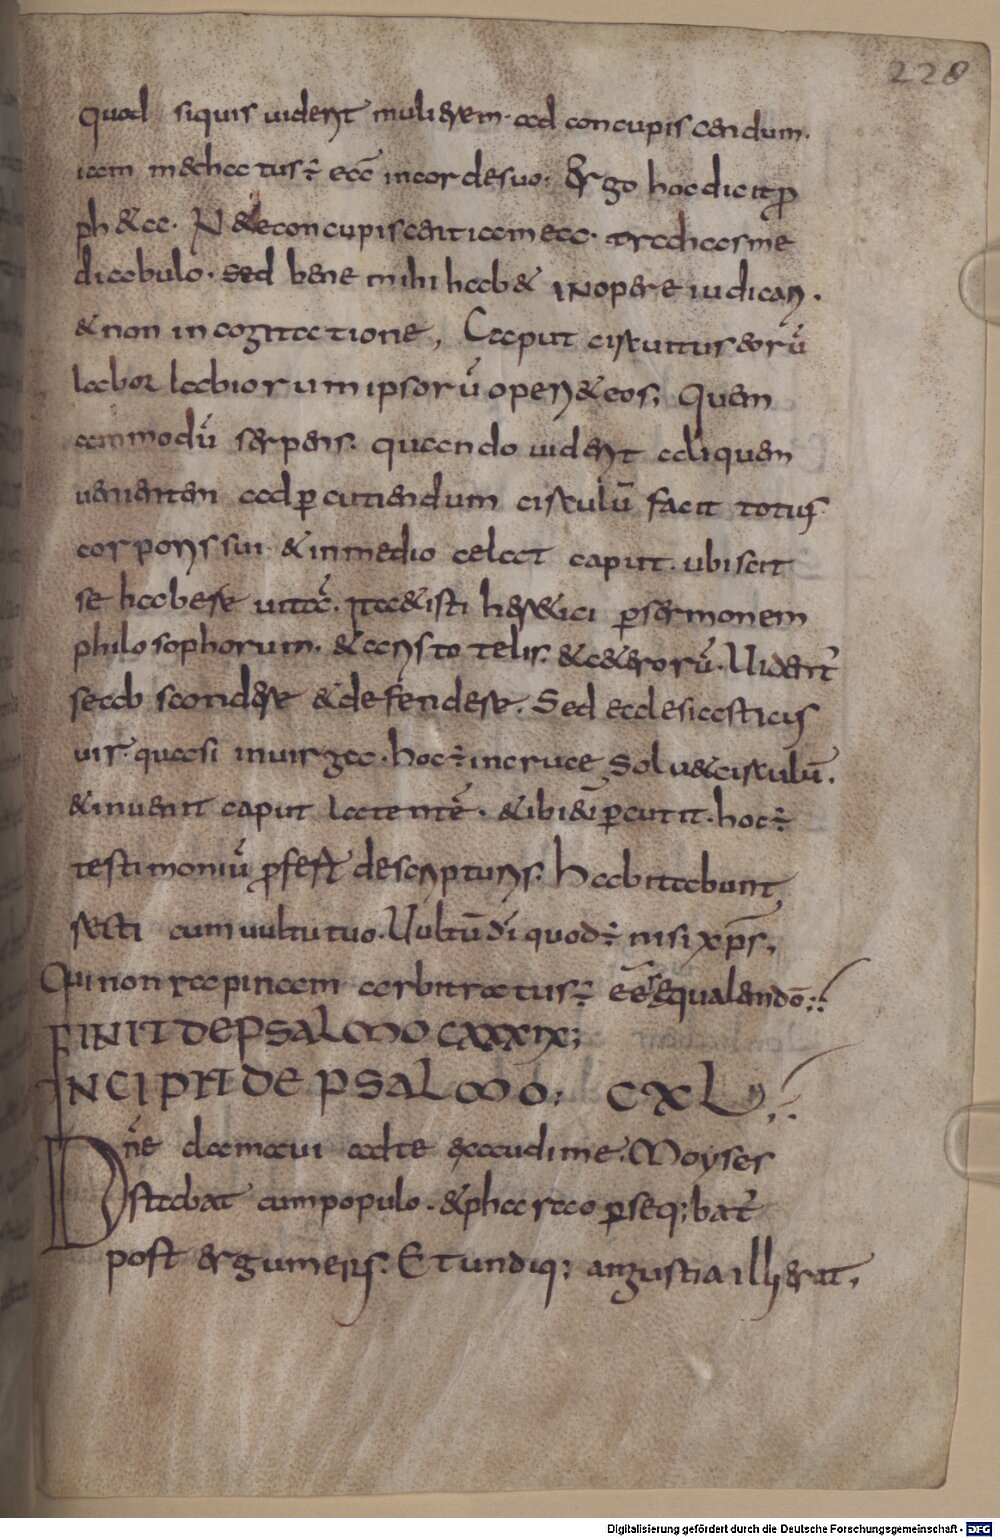 228
quod siquis uiderit mulierem. ad concupiscendum.
iam mechatus ÷ eā in corde suo. Ergo hoc dicit p̱
pheta. Ne a concupiscentia mea. tradas me
diabulo. sed bene mihi habet in opere iudicari.
& non in cogitatione, Caput circuitus eorū
labor labiorum ipsorū operi& eos; Quem
ammodū serpens. quando uiderit aliquem
uenientem ad ꝑcutiendum circulū facit totius
corporis sui & in medio celat caput. ubi scit
se habere uitā. Ita & isti heretici ꝑ sermonem
philosophorum. & aristotelis. & ceterorū. Uident̄
se abscondere & defendere. Sed ecclesiasticus
uir. quasi in uirga. hoc ÷ in cruce, Soluet circulū.
& inuenit caput latentē. & ibidē ꝑcutit. hoc ÷
testimoniū ꝓfert de scripturis. Habitabunt
recti cum uultu tuo. Uultū dī quod ÷ nisi xp̄s,
Qui non rapinam arbitratus ÷ eē se equalem dō;:
FINIT DE PSALMO CXXXIX;
INCIPIT DE PSALMO; CXL;
Dn̄e clamaui ad te exaudi me. Moyses
stabat cum populo. & pharao ꝑseq;bat̄
post ergum eius. Et undiq; angustia illi erat.
Digitalisierung gefördert durch die Deutsche Forschungsgemeinschaft - DFG